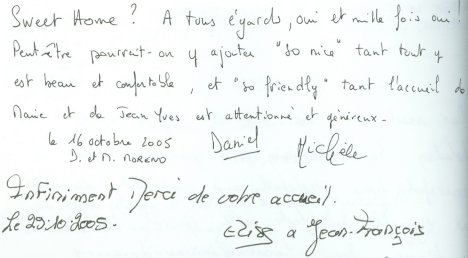 Sweet Home ? A tous égards, oui et mille fois oui !
Peut-être pourrait-on y ajouter "so nice" tant tout y
est beau et confortable, et "so friendly" tant l'accueil de
Marie et de Jean Yves est attentionné et généreux -
le 16 octobre 2005 Daniel Michèle
D. et M. MORENO
Infiniment Merci de votre accueil.
Le 29.10.2005. Elise Jean-François